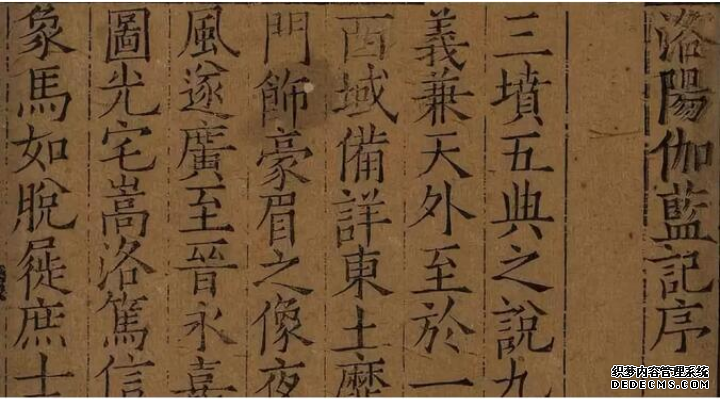 洛陽伽藍記序
三墳五典之說九
義兼天外至於一
西域備詳東土靡
門飾豪眉之像夜
風遂廣至晉永嘉
圖光宅嵩洛篤信
象馬如脫屣庶士
织梦内容管理系统
DEDECMS.COM